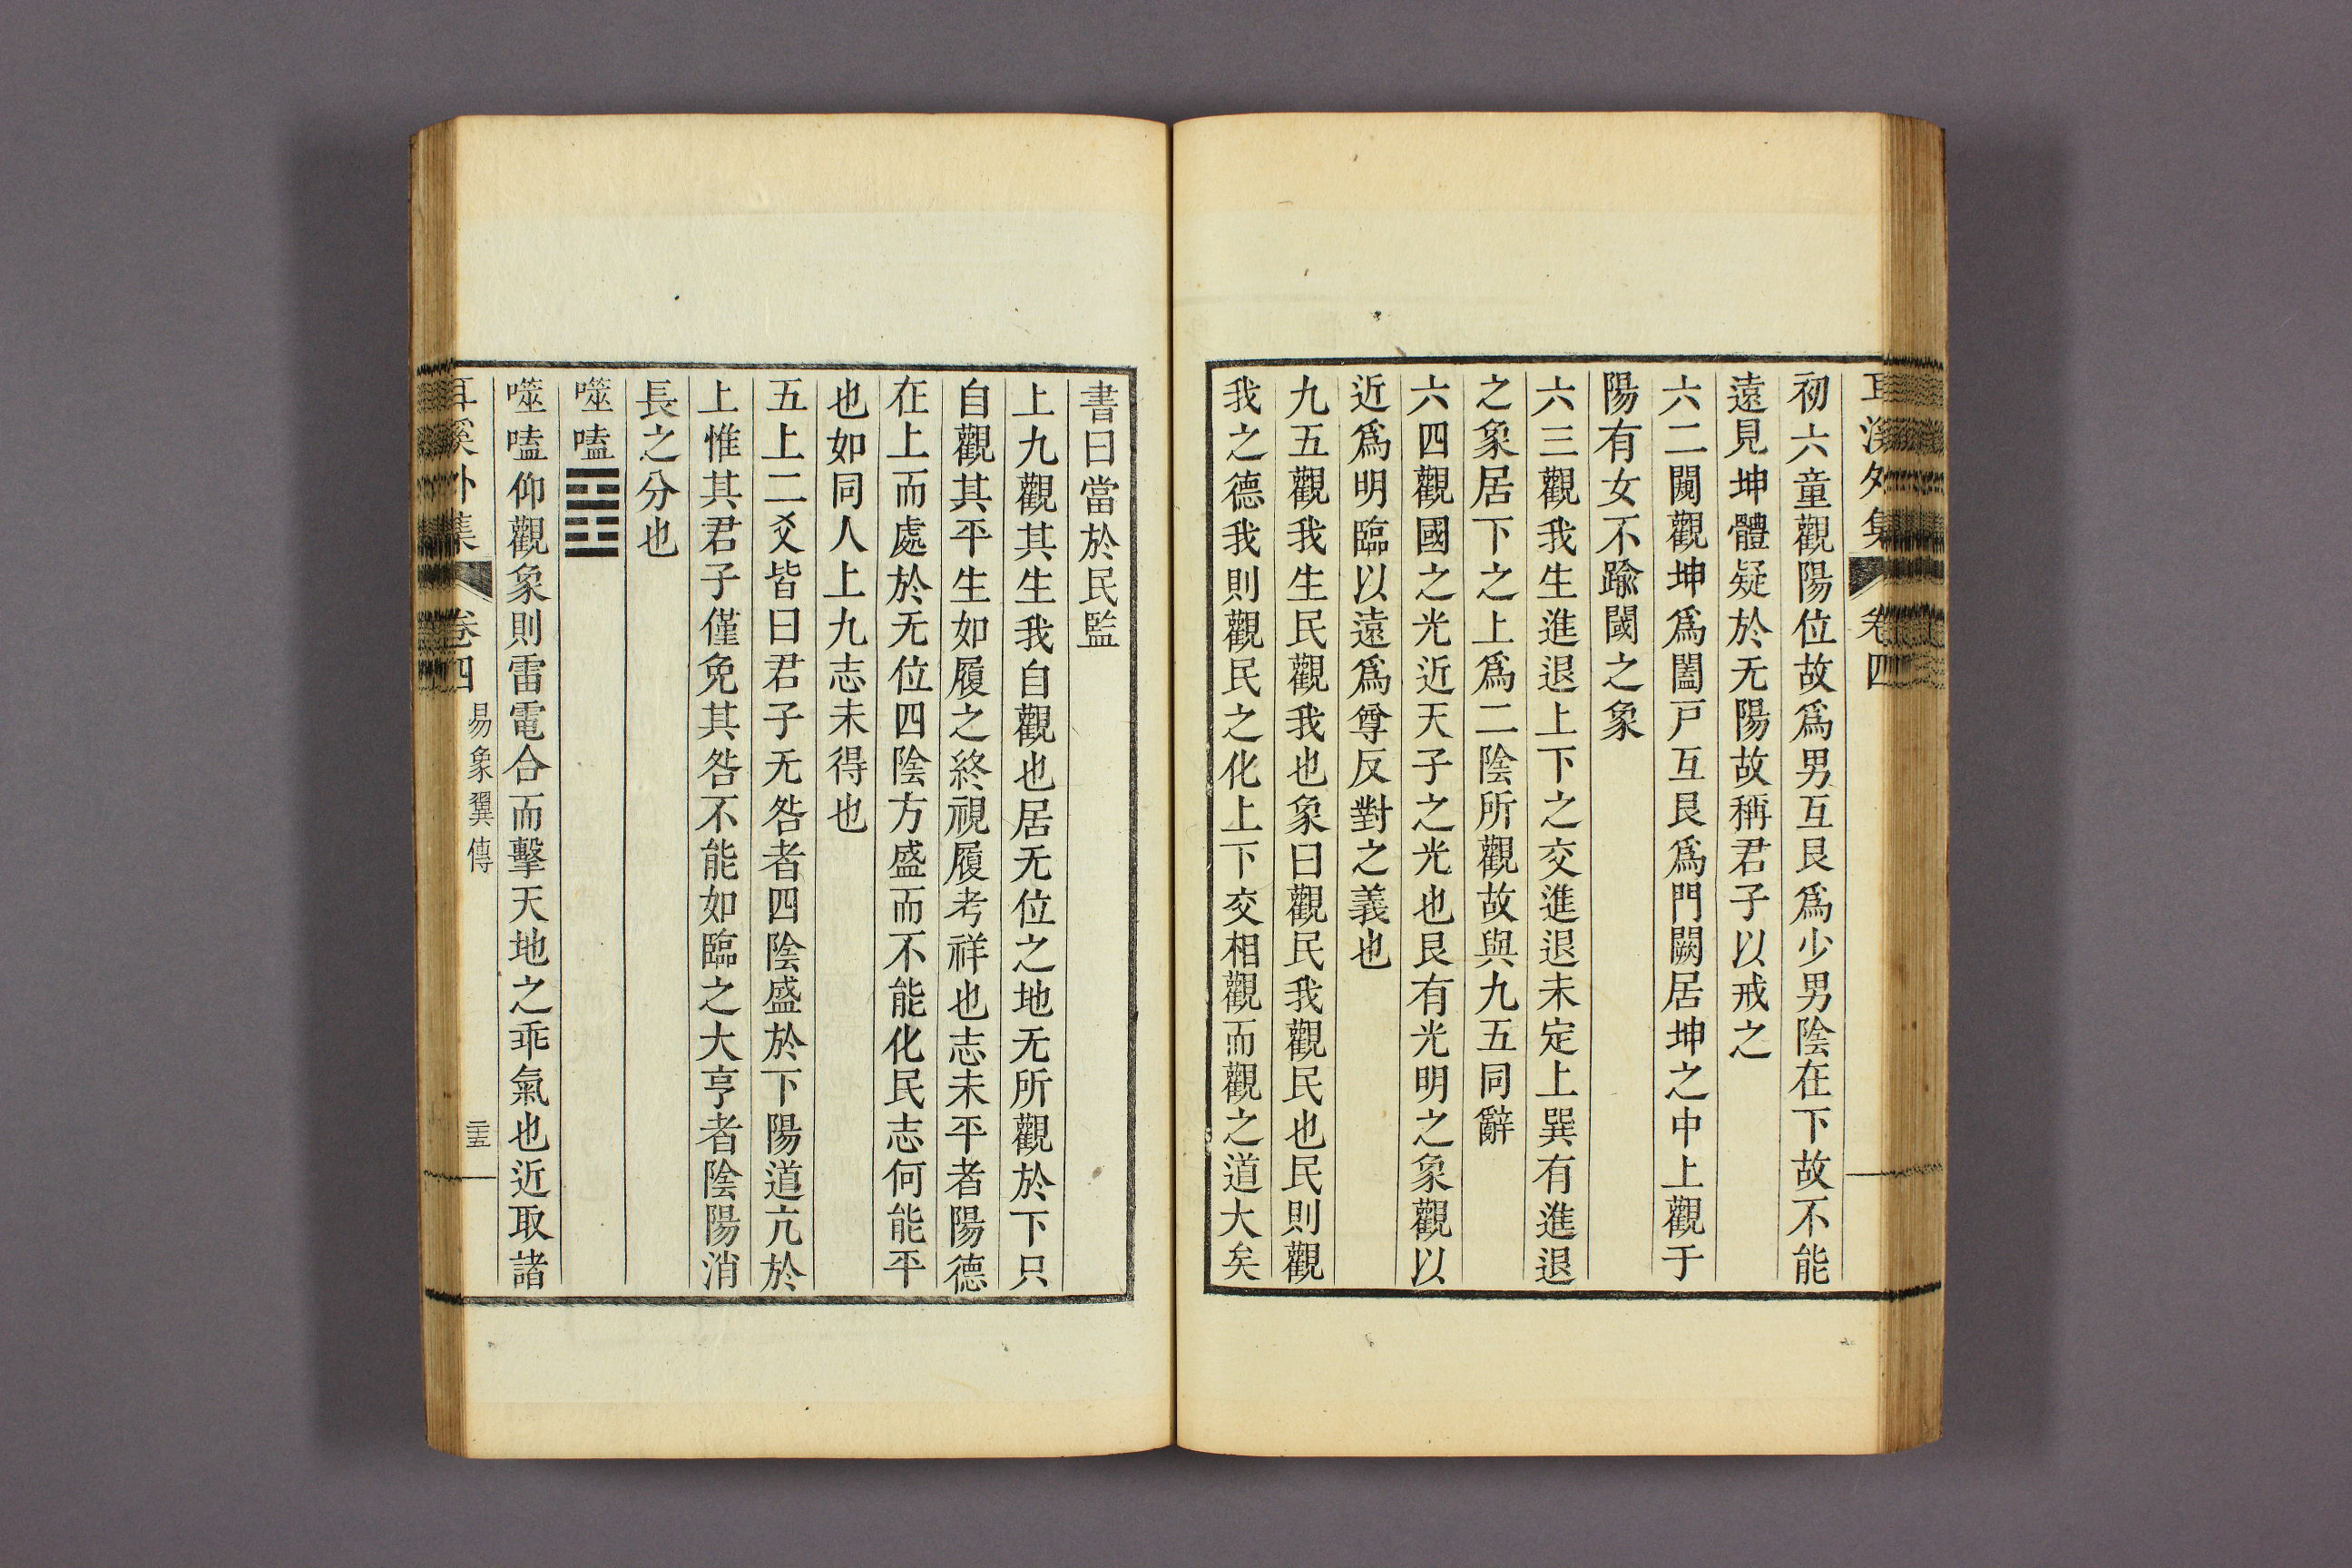 耳溪外集 卷四
初六童觀陽位故爲男互艮爲少男陰在下故不能
遠見坤體疑於无陽故稱君子以戒之
六二闚觀坤爲闔戶互艮爲門闕居坤之中上觀于
陽有女不踰閾之象
六三觀我生進退上下之交進退未定上巽有進退
之象居下之上爲二陰所觀故與九五同辭
六四觀國之光近天子之光也艮有光明之象觀以
近爲明臨以遠爲尊反對之義也
九五觀我生民觀我也象曰觀民我觀民也民則觀
我之德我則觀民之化上下交相觀而觀之道大矣
書曰當於民監
上九觀其生我自觀也居无位之地无所觀於下只
自觀其平生如履之終視履考祥也志未平者陽德
在上而處於无位四陰方盛而不能化民志何能平
也如同人上九志未得也
五上二爻皆曰君子无咎者四陰盛於下陽道亢於
上惟其君子僅免其咎不能如臨之大亨者陰陽消
長之分也
噬嗑䷔
噬嗑仰觀象則雷電合而擊天地之乖氣也近取諸
耳溪外集 卷四 易象翼傳 二十五